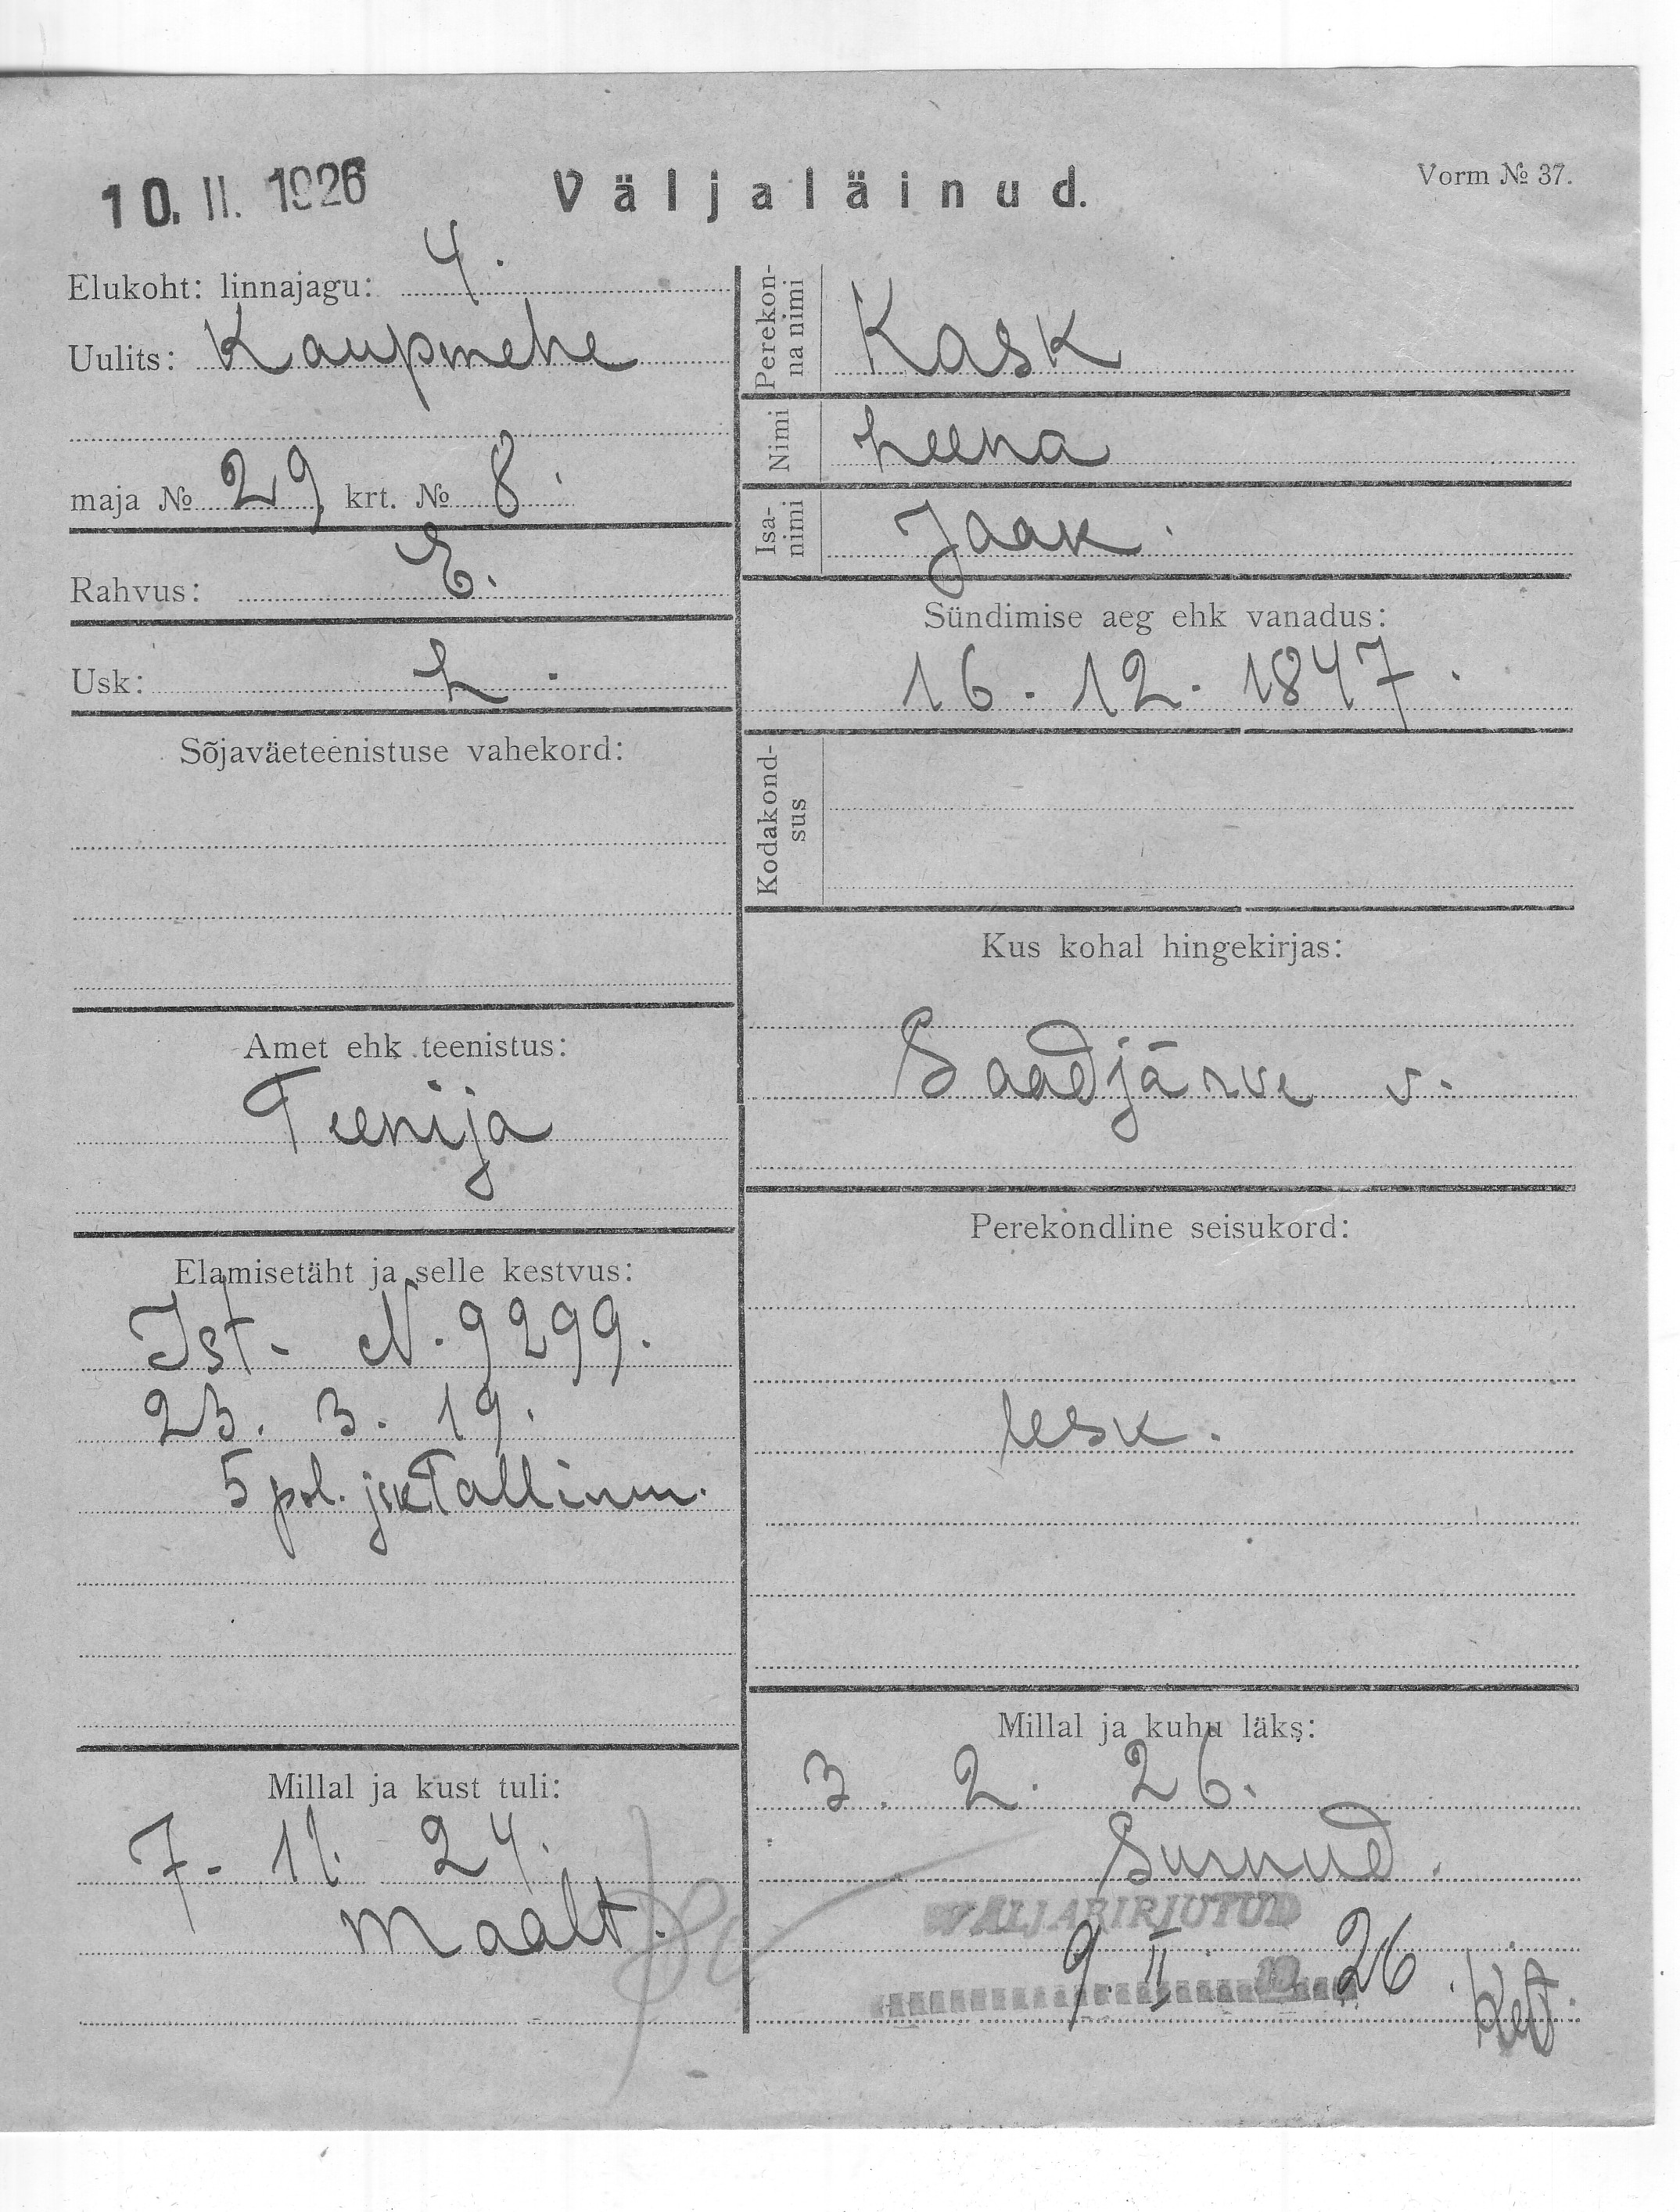 10. II. 1926
Väljaläinud.
Vorm № 37.
Elukoht: linnajagu: 4.
Uulits: Kaupmehe
maja № 29, krt. № 8.
Rahvus: E.
Usk: L.
Sõjaväeteenistuse vahekord:
Amet ehk teenistus:
Teenija
Elamisetäht ja selle kestvus:
Ist. N. 9299.
23. 3. 19.
5 pol. jsk Tallinn.
Millal ja kust tuli:
7. 11. 24.
Maalt.
Perekon-
na nimi
Kask
Nimi
Leena
Isa-
nimi
Jaak.
Sündimise aeg ehk vanadus:
16. 12. 1847.
Kodakond-
sus
Kus kohal hingekirjas:
Saadjärve v.
Perekondline seisukord:
lesk.
Millal ja kuhu läks:
3. 2. 26.
Surnud.
VÄLJAKIRJUTUD
9. II 26.